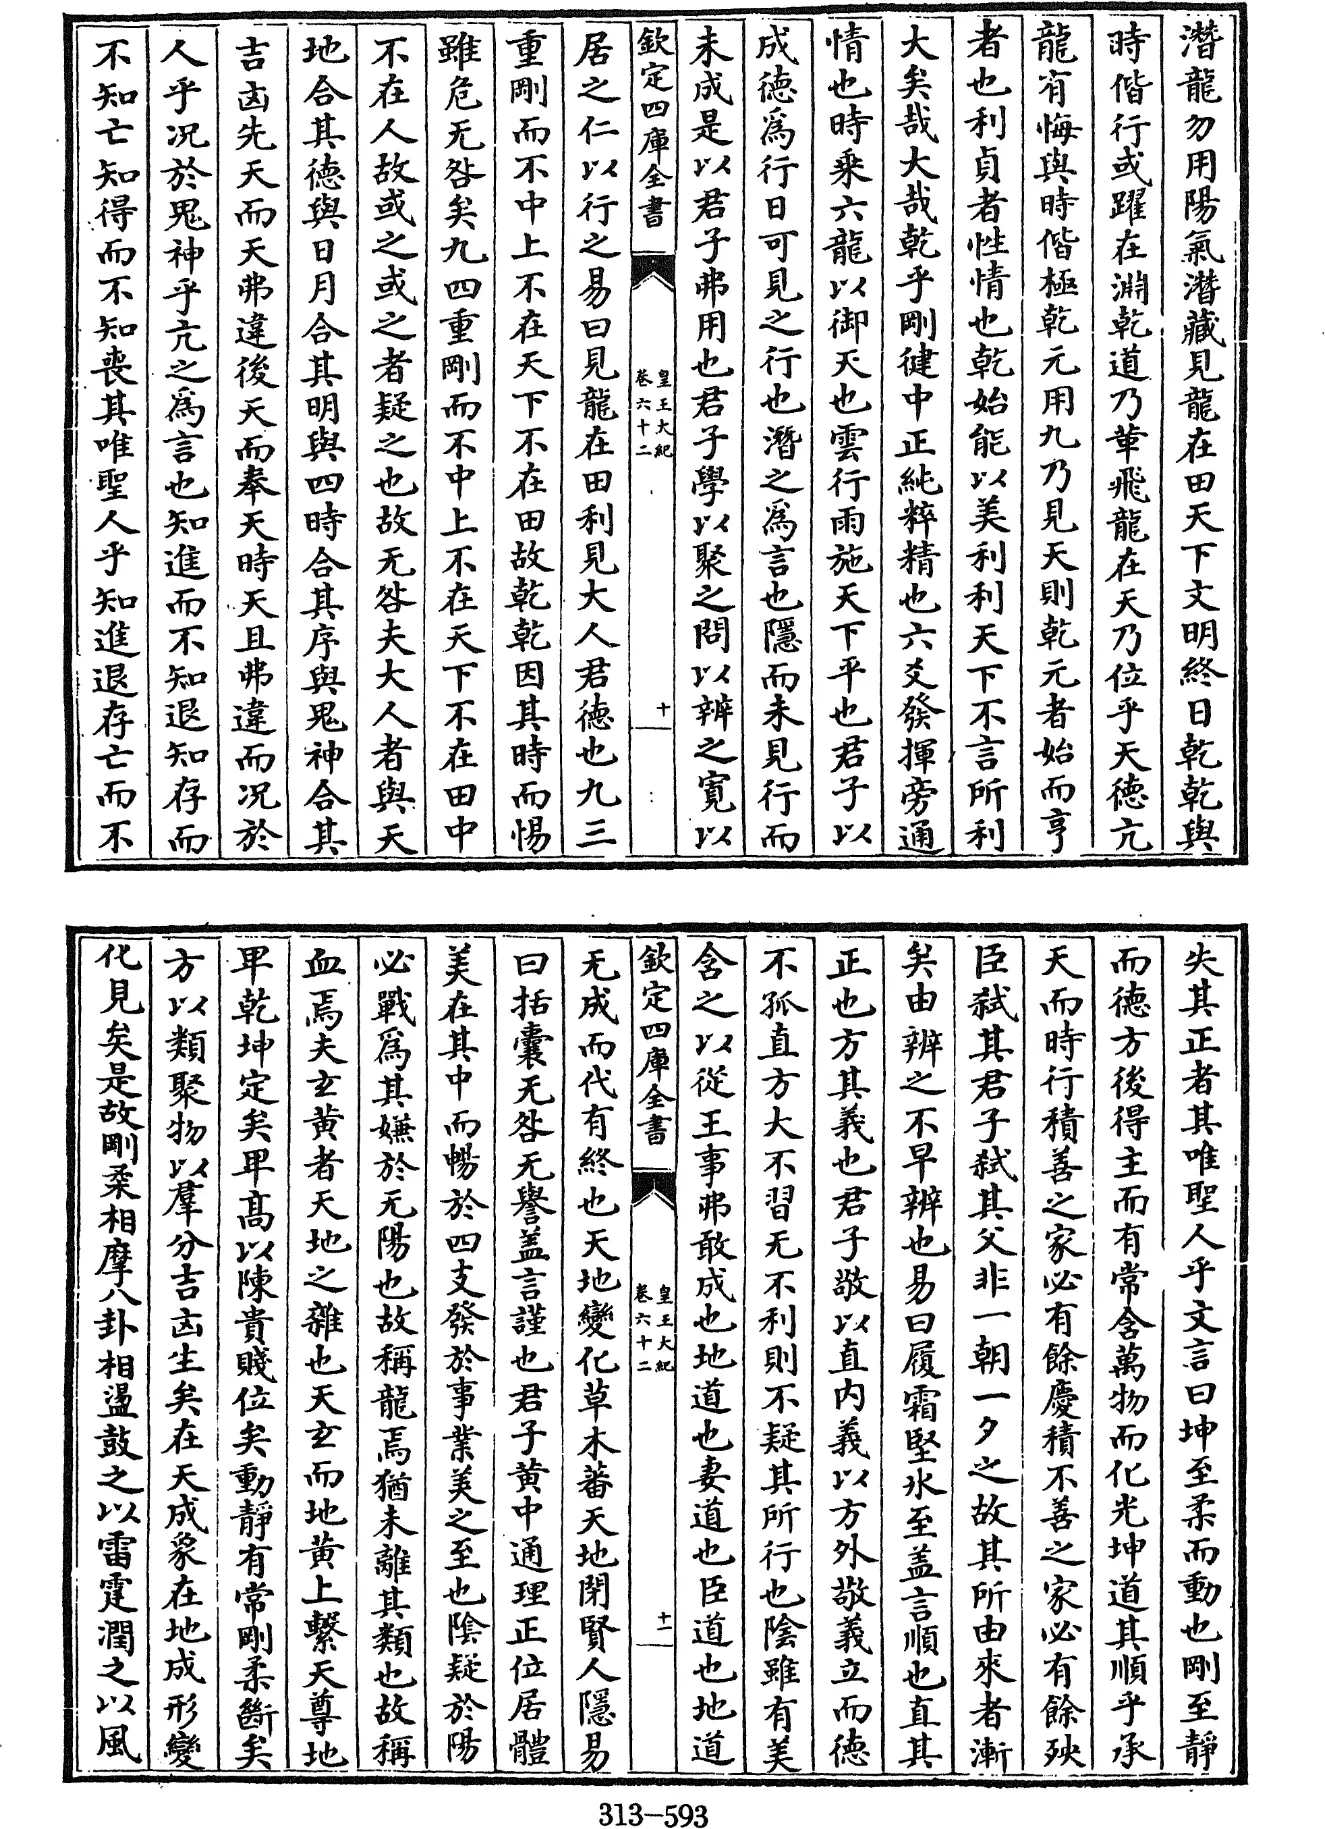 潛龍勿用陽氣潛藏見龍在田天下文明終日乾乾與
時偕行或躍在淵乾道乃革飛龍在天乃位乎天德亢
龍有悔與時偕極乾元用九乃見天則乾元者始而亨
者也利貞者性情也乾始能以美利利天下不言所利
大矣哉大哉乾乎剛健中正純粹精也六爻發揮旁通
情也時乘六龍以御天也雲行雨施天下平也君子以
成德為行日可見之行也潛之為言也隱而未見行而
未成是以君子弗用也君子學以聚之問以辨之寬以
欽定四庫全書
皇王大紀
卷六十二
十
居之仁以行之易曰見龍在田利見大人君德也九三
重剛而不中上不在天下不在田故乾乾因其時而惕
雖危无咎矣九四重剛而不中上不在天下不在田中
不在人故或之或之者疑之也故无咎夫大人者與天
地合其德與日月合其明與四時合其序與鬼神合其
吉凶先天而天弗違後天而奉天時天且弗違而況於
人乎況於鬼神乎亢之為言也知進而不知退知存而
不知亡知得而不知喪其唯聖人乎知進退存亡而不
失其正者其唯聖人乎文言曰坤至柔而動也剛至靜
而德方後得主而有常含萬物而化光坤道其順乎承
天而時行積善之家必有餘慶積不善之家必有餘殃
臣弑其君子弑其父非一朝一夕之故其所由來者漸
矣由辨之不早辨也易曰履霜堅冰至蓋言順也直其
正也方其義也君子敬以直内義以方外敬義立而德
不孤直方大不習无不利則不疑其所行也陰雖有美
含之以從王事弗敢成也地道也妻道也臣道也地道
欽定四庫全書
皇王大紀
卷六十二
十一
无成而代有終也天地變化草木蕃天地閉賢人隱易
曰括囊无咎无譽蓋言謹也君子黄中通理正位居體
美在其中而暢於四支發於事業美之至也陰疑於陽
必戰為其嫌於无陽也故稱龍焉猶未離其類也故稱
血焉夫玄黄者天地之雜也天玄而地黄上繫天尊地
卑乾坤定矣卑高以陳貴賤位矣動靜有常剛柔斷矣
方以類聚物以羣分吉凶生矣在天成象在地成形變
化見矣是故剛柔相摩八卦相盪鼓之以雷霆潤之以風
313-593